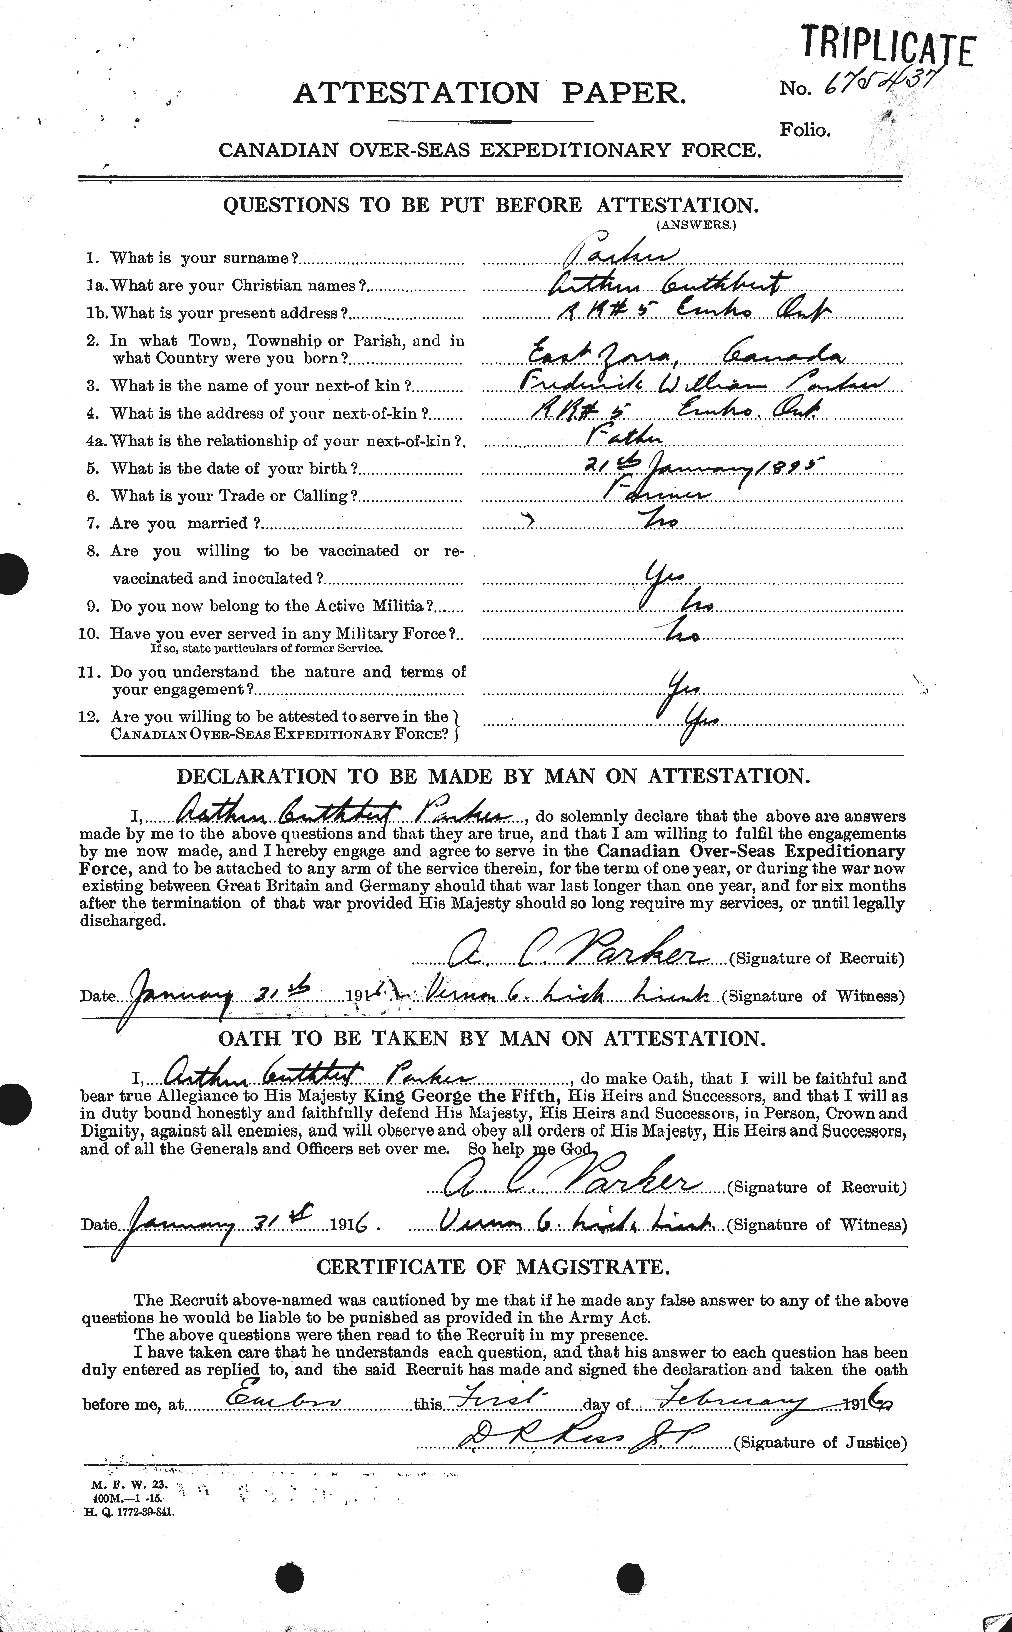 TRIPLICATE
ATTESTATION PAPER.
No. 675437
Folio.
CANADIAN OVER-SEAS EXPEDITIONARY FORCE.
QUESTIONS TO BE PUT BEFORE ATTESTATION.
(ANSWERS.)
1. What is your surname? Parker
1a. What are your Christian names? Arthur Cuthbert
1b. What is your present address? R R # 5 Embro Ont
2. In what Town, Township or Parish, and in
what Country were you born? East Zorra, Canada
3. What is the name of your next-of kin? Frederick William Parker
4. What is the address of your next-of-kin? R R # 5 Embro. Ont.
4a. What is the relationship of your next-of-kin? Father
5. What is the date of your birth? 21st January 1895
6. What is your Trade or Calling? Farmer
7. Are you married? No
8. Are you willing to be vaccinated or re-
vaccinated and inoculated? Yes
9. Do you now belong to the Active Militia? No
10. Have you ever served in any Military Force? No
If so, state particulars of former Service.
11. Do you understand the nature and terms of
your engagement? Yes
12. Are you willing to be attested to serve in the
CANADIAN OVER-SEAS EXPEDITIONARY FORCE? Yes
DECLARATION TO BE MADE BY MAN ON ATTESTATION.
I, Arthur Cuthbert Parker, do solemnly declare that the above are answers
made by me to the above questions and that they are true, and that I am willing to fulfil the engagements
by me now made, and I hereby engage and agree to serve in the Canadian Over-Seas Expeditionary
Force, and to be attached to any arm of the service therein, for the term of one year, or during the war now
existing between Great Britain and Germany should that war last longer than one year, and for six months
after the termination of that war provided His Majesty should so long require my services, or until legally
discharged.
A. C. Parker (Signature of Recruit)
Date January 31st 1916 Vernon G. Lieut (Signature of Witness)
OATH TO BE TAKEN BY MAN ON ATTESTATION.
I, Arthur Cuthbert Parker, do make Oath, that I will be faithful and
bear true Allegiance to His Majesty King George the Fifth, His Heirs and Successors, and that I will as
in duty bound honestly and faithfully defend His Majesty, His Heirs and Successors, in Person, Crown and
Dignity, against all enemies, and will observe and obey all orders of His Majesty, His Heirs and Successors,
and of all the Generals and Officers set over me. So help me God.
A C. Parker (Signature of Recruit)
Date January 31st 1916. Vernon G. Lieut. (Signature of Witness)
CERTIFICATE OF MAGISTRATE.
The Recruit above-named was cautioned by me that if he made any false answer to any of the above
questions he would be liable to be punished as provided in the Army Act.
The above questions were then read to the Recruit in my presence.
I have taken care that he understands each question, and that his answer to each question has been
duly entered as replied to, and the said Recruit has made and signed the declaration and taken the oath
before me, at Embro this First day of February 1916
D R Ross J.P. (Signature of Justice)
M. F. W. 23.
400M.—1 -15.
H. Q. 1772-39-841.